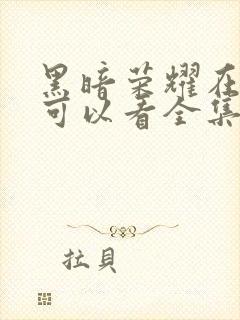 黑暗荣耀在
可以看全集
拉貝